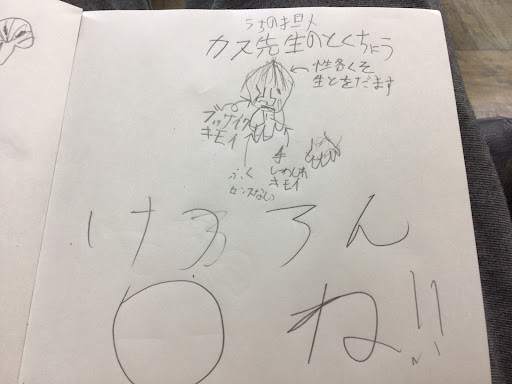 うちのオ旦人
カス先生のとくちょう
←性各くそ
生とをだます
ブッサイク
キモイ
手
しわしわ
キモイ
ふく
センスない
けろん
〇ね!!